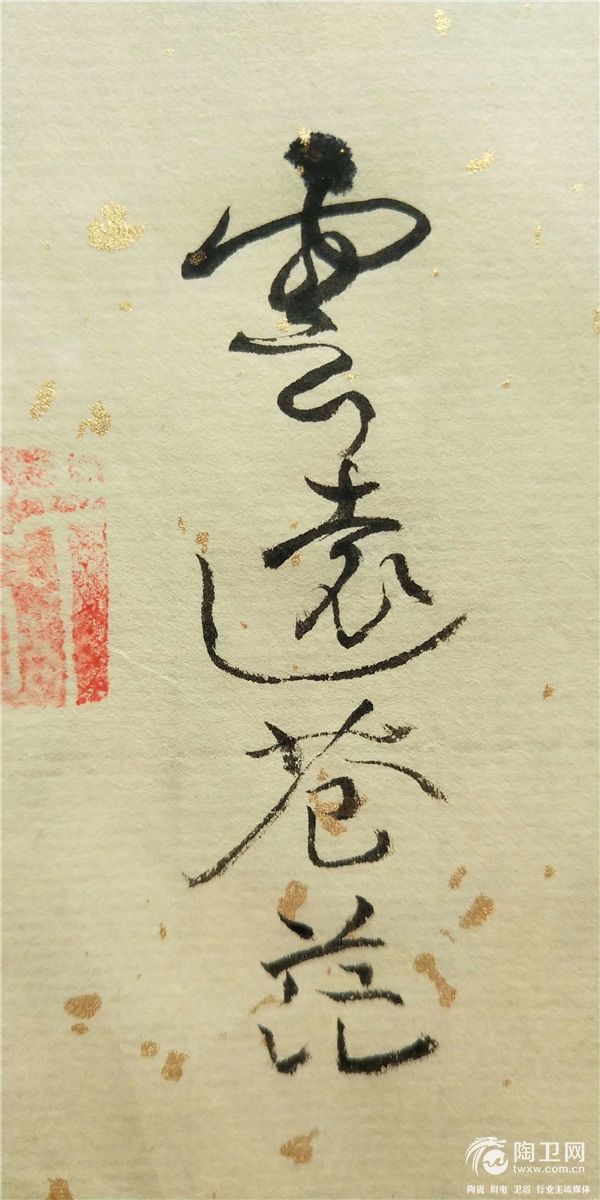 雲遠苍荒
陶卫网
twxw.com.cn
陶瓷 厨电 卫浴 行业主流媒体